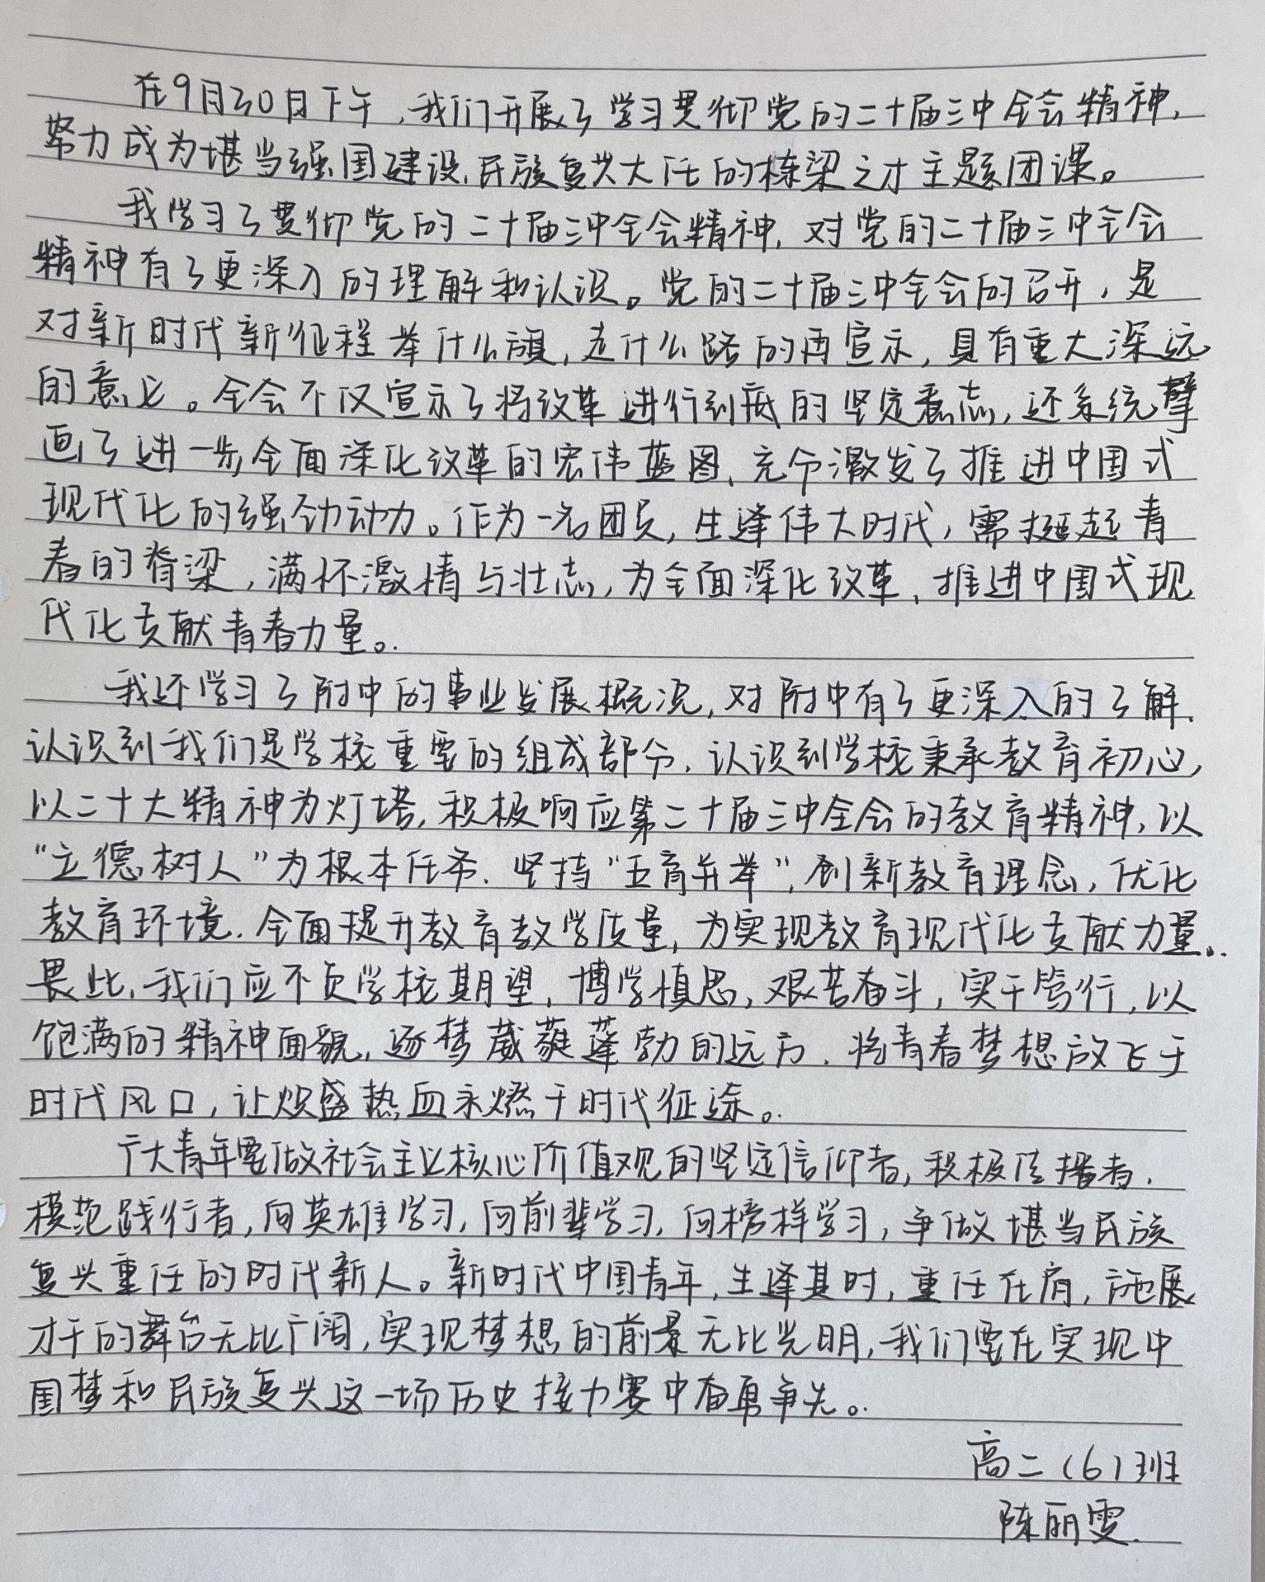 在9月30日下午，我们开展了学习贯彻党的二十届三中全会精神，
努力成为堪当强国建设、民族复兴大任的栋梁之才主题团课。
我学习了贯彻党的二十届三中全会精神，对党的二十届三中全会
精神有了更深入的理解和认识。党的二十届三中全会的召开，是
对新时代新征程举什么旗，走什么路的再宣示，具有重大深远
的意义。全会不仅宣示了将改革进行到底的坚定意志，还系统擘
画了进一步全面深化改革的宏伟蓝图、充分激发了推进中国式
现代化的强劲动力。作为一名团员，生逢伟大时代，需挺起青
春的脊梁，满怀激情与壮志，为全面深化改革、推进中国式现
代化贡献青春力量。
我还学习了附中的事业发展概况，对附中有了更深入的了解、
认识到我们是学校重要的组成部分、认识到学校秉承教育初心，
以二十大精神为灯塔，积极响应第二十届三中全会的教育精神，以
“立德树人”为根本任务、坚持“五育并举”，创新教育理念，优化
教育环境、全面提升教育教学质量，为实现教育现代化贡献力量。
畏此，我们应不负学校期望，博学慎思，艰苦奋斗，实干笃行，以
饱满的精神面貌，逐梦葳蕤蓬勃的远方、将青春梦想放飞于
时代风口，让炽盛热血永燃于时代征途。
广大青年要做社会主义核心价值观的坚定信仰者，积极传播者、
模范践行者，向英雄学习，向前辈学习，向榜样学习，争做堪当民族
复兴重任的时代新人。新时代中国青年，生逢其时，重任在肩，施展
才干的舞台无比广阔，实现梦想的前景无比光明，我们要在实现中
国梦和民族复兴这一场历史接力赛中奋勇争先。
高二（6）班
陈丽雯